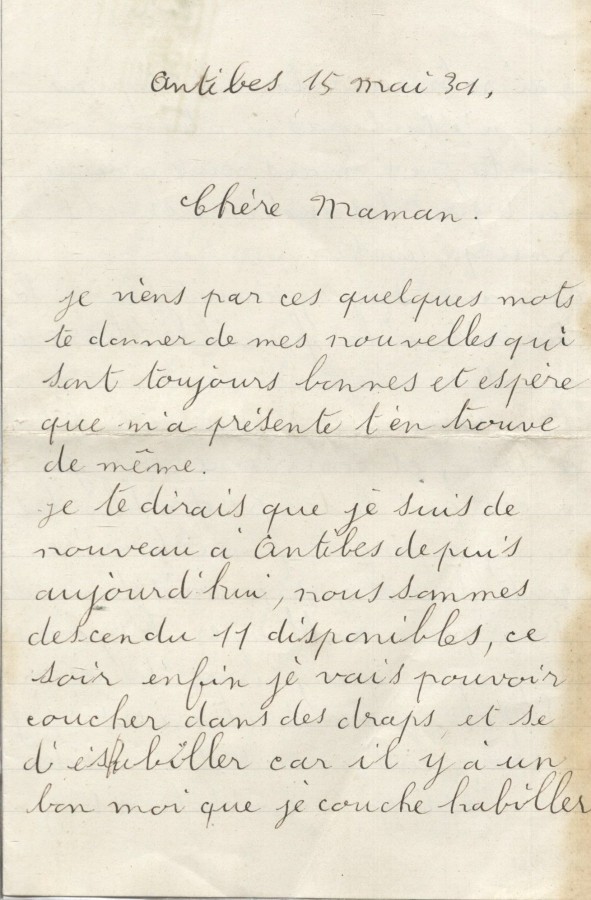 Antibes 15 mai 39,
Chère Maman.
je viens par ces quelques mots
te donner de mes nouvelles qui
sont toujours bonnes et espère
que m'a présente t'en trouve
de même.
je te dirais que je suis de
nouveau à Antibes depuis
aujourd'hui, nous sommes
descendu 11 disponibles, ce
soir enfin je vais pouvoir
coucher dans des draps et se
d'éshabiller car il y à un
bon moi que je couche habiller